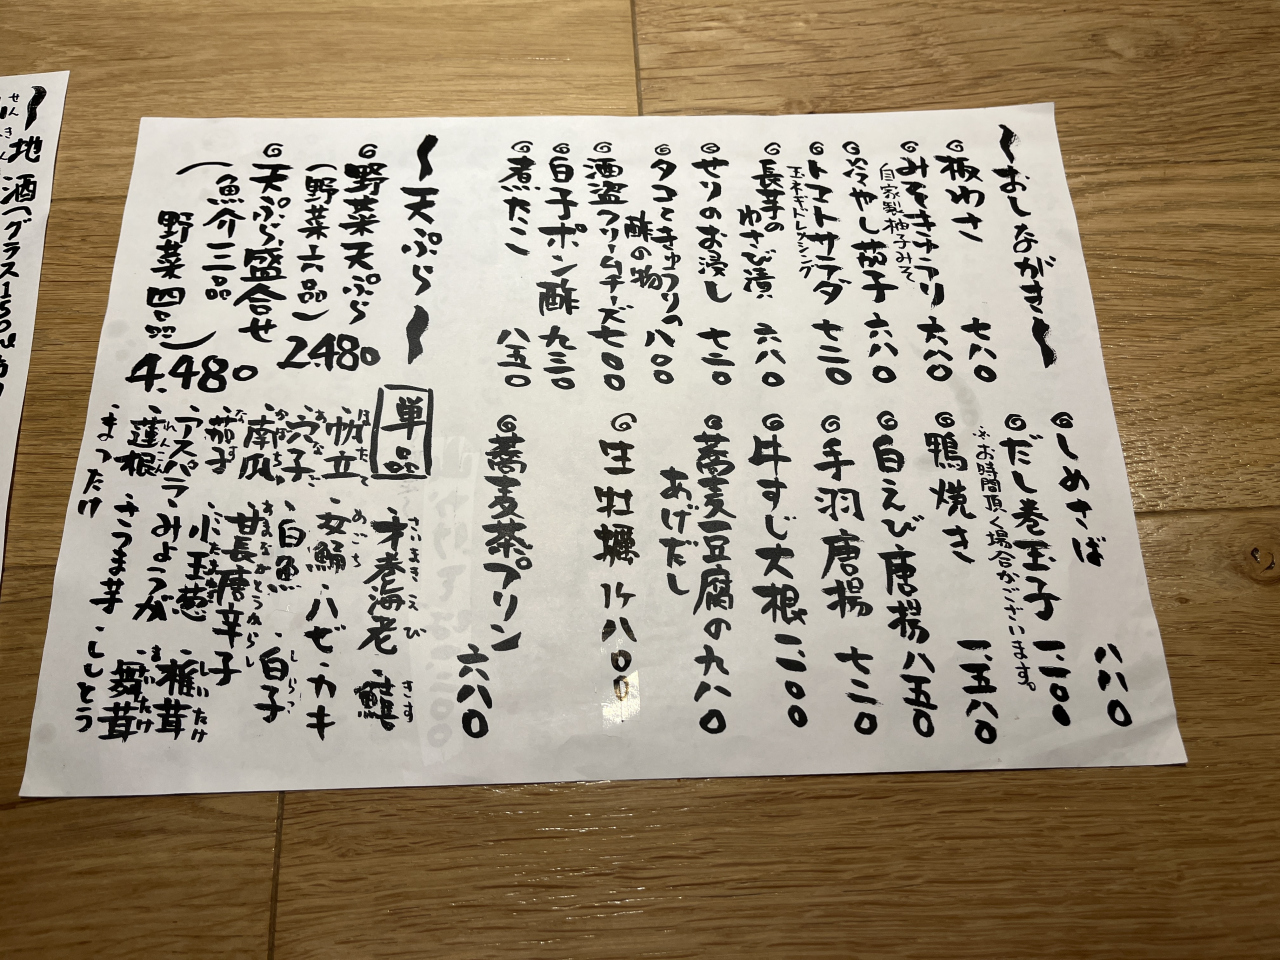 〜おしながき〜
◎板わさ 七八〇
◎みそきゅうり 六八〇
自家製柚子みそ
◎冷やし茄子 六八〇
◎トマトサラダ 七二〇
玉ネギドレッシング
◎長芋の
わさび漬 六八〇
◎せりのお浸し 七二〇
◎タコときゅうりの
酢の物 八〇〇
◎酒盗クリームチーズ 七〇〇
◎白子ポン酢 九三〇
◎煮だこ 八五〇
◎しめさば 八八〇
◎だし巻玉子 一、二〇〇
※お時間頂く場合がございます。
◎鴨焼き 一、五八〇
◎白えび唐揚 八五〇
◎手羽唐揚 七二〇
◎牛すじ大根 一、二〇〇
◎蕎麦豆腐の
あげだし 九八〇
◎生牡蠣 1ヶ 八〇〇
◎蕎麦茶プリン 六八〇
〜天ぷら〜
◎野菜天ぷら
(野菜六品) 2.480
◎天ぷら盛合せ
(魚介三品
野菜四品) 4.480
単品
・才巻海老 さいまきえび ・鱚 きす
・帆立 ほたて ・女鯒 めごち ・ハゼ ・カキ
・穴子 あなご ・白魚 ・白子 しらこ
・南瓜 かぼちゃ ・甘長唐辛子 あまながとうがらし
・茄子 なす ・小玉葱 こたまねぎ ・椎茸 しいたけ
・アスパラ ・みょうが ・舞茸 まいたけ
・蓮根 れんこん ・さつま芋 ・ししとう
・まつたけ
〜地酒(グラス150
せんきん